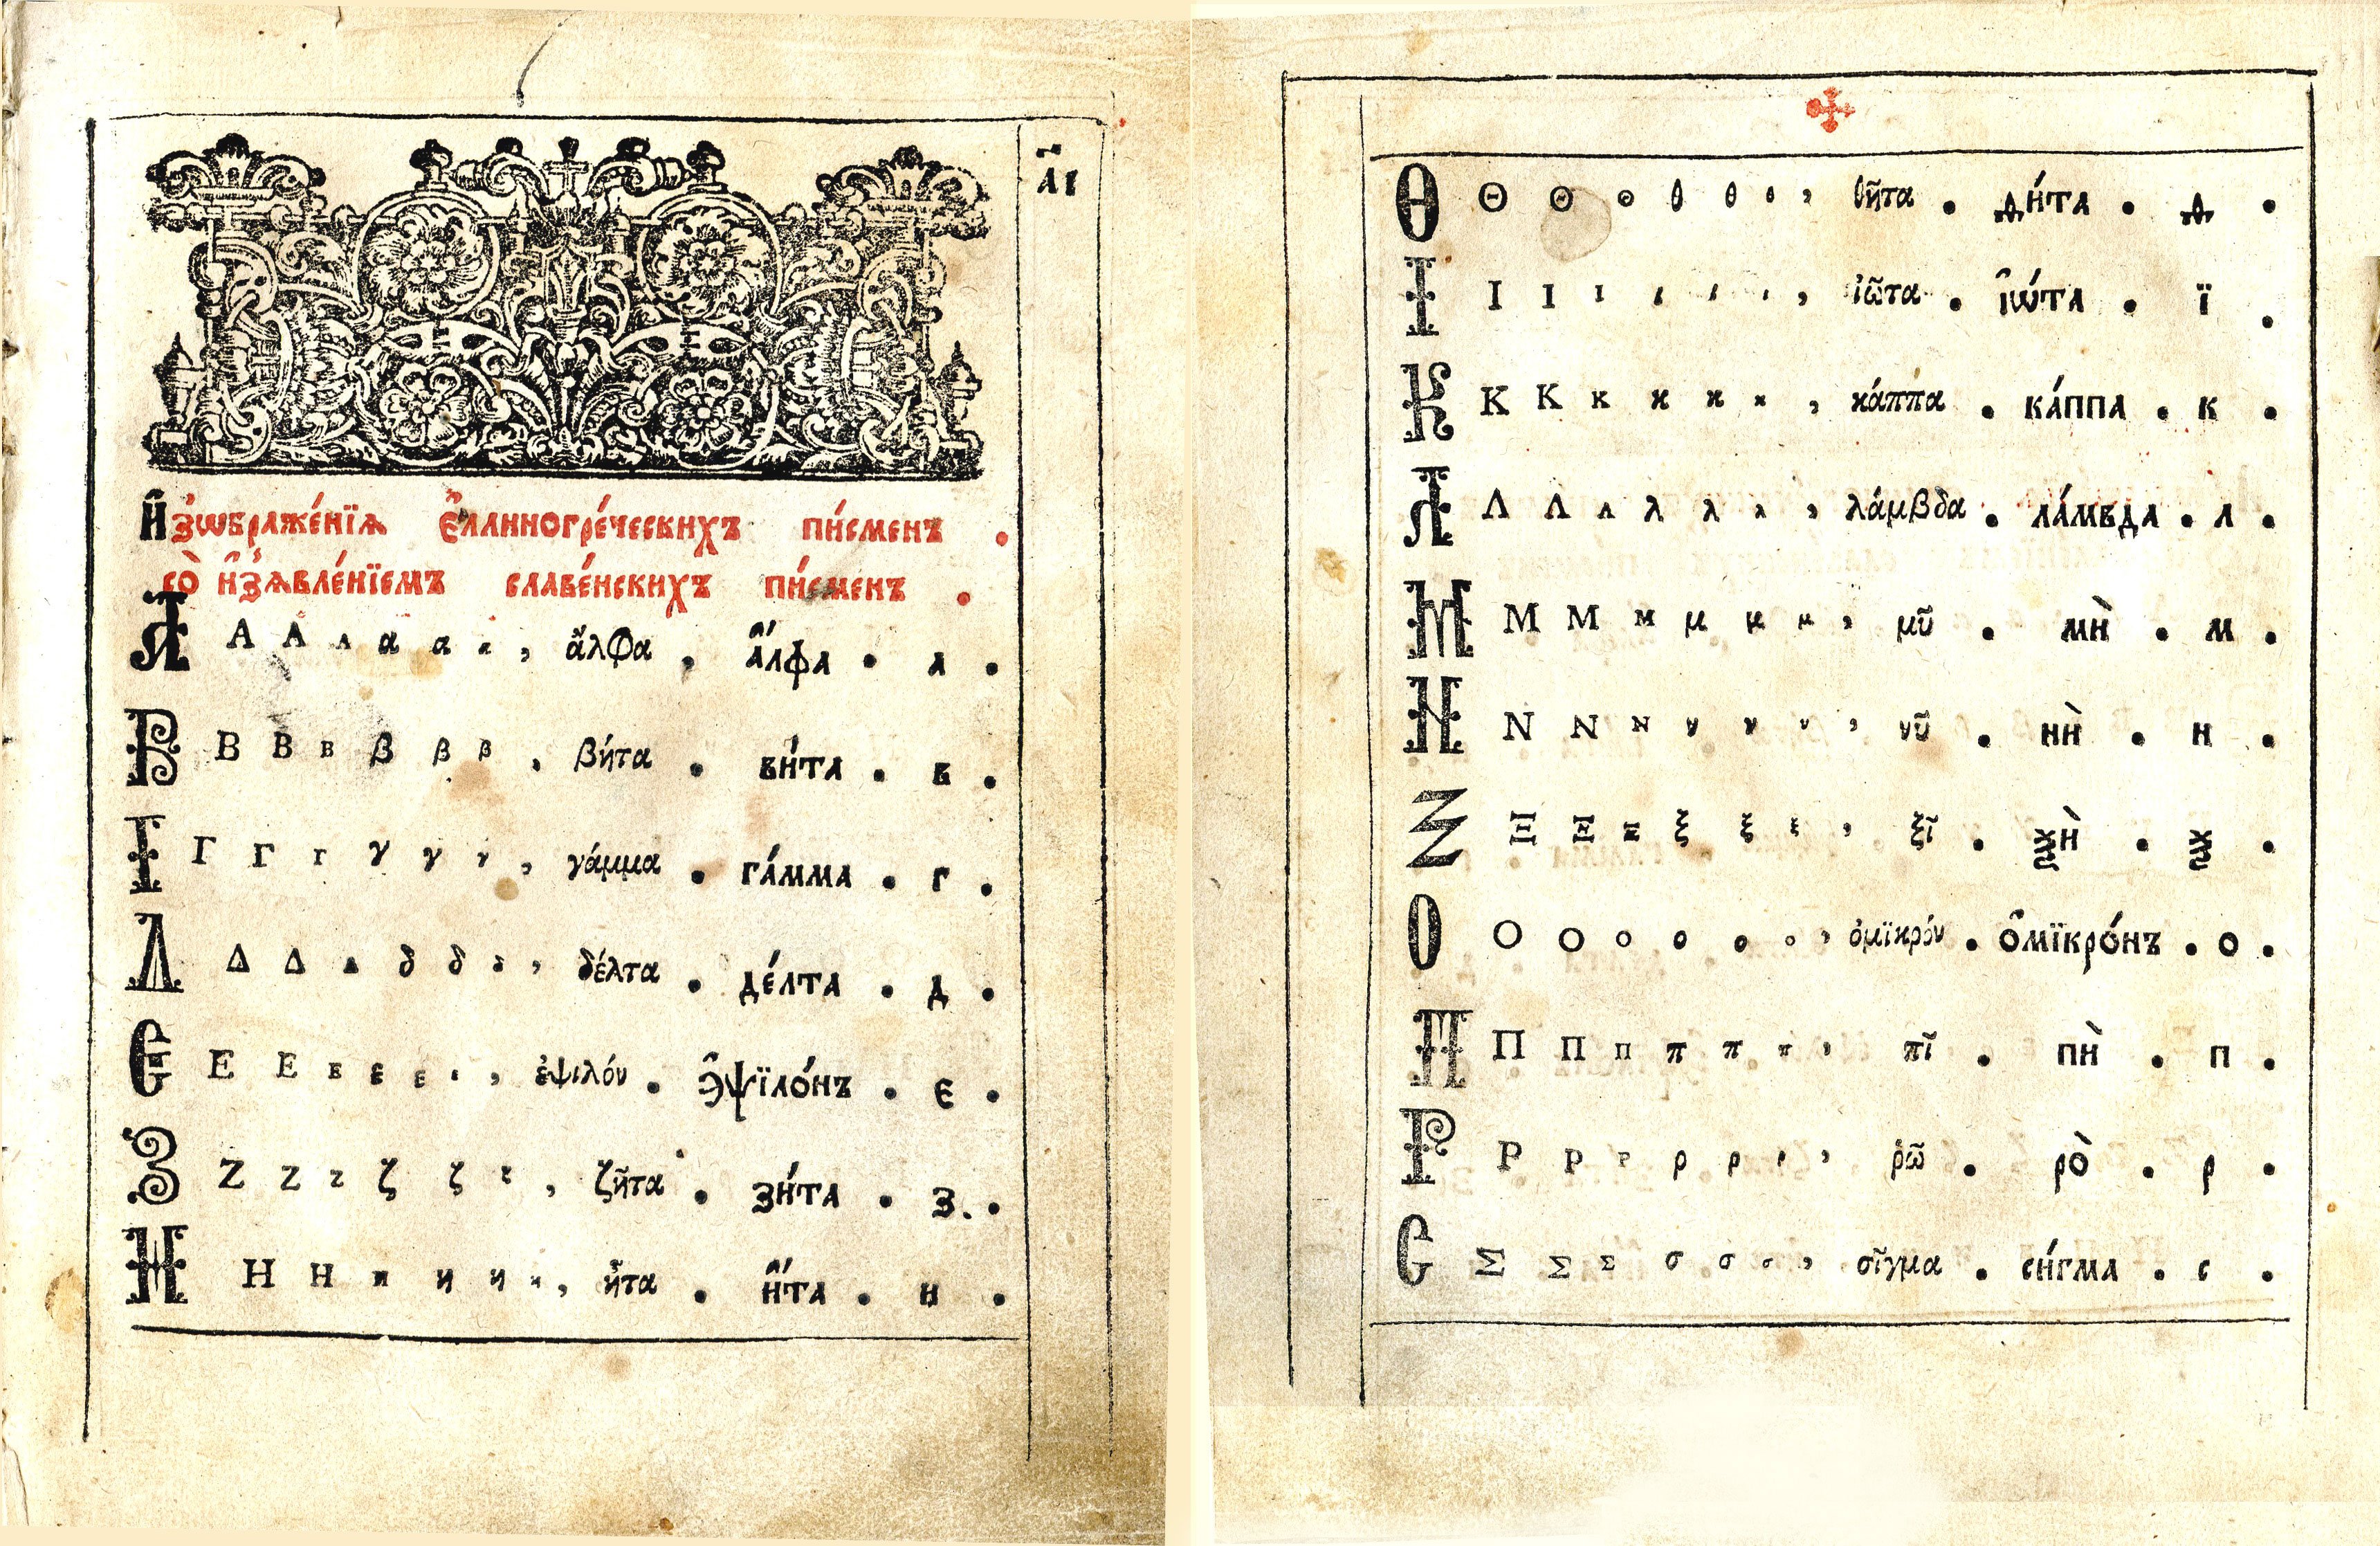 а҃і
И҆зѡбраже́нїѧ є҆ллиногре́ческихъ пи́сменъ .
со̀ и҆зѧвле́нїемъ славе́нскихъ пи́сменъ .
А Α Α Α α α α , ἄλφα , а҆́лфа . а .
В Β Β Β β β β , βήτα . ви́та . в .
Г Γ Γ Γ γ γ γ , γάμμα . га́мма . г .
Δ Δ Δ Δ δ δ δ , δέλτα . де́лта . д .
Є Ε Ε Ε ε ε ε , ἐψιλόν . э҆ѱїло́нъ . є .
З Ζ Ζ Ζ ζ ζ ζ , ζῆτα . зи́та . з .
Н Η Η Η η η η , ἦτα . и҆́та . и .
Ѳ Θ Θ Θ θ θ θ , θῆτα . ѳи́та . ѳ .
І Ι Ι Ι ι ι ι , ἰῶτα . і҆ѡ́та . ї .
К Κ Κ Κ κ κ κ , κάππα . ка́ппа . к .
Л Λ Λ Λ λ λ λ , λάμβδα . ла́мвда . л .
М Μ Μ Μ μ μ μ , μῦ . мѝ . м .
N Ν Ν Ν ν ν ν , νῦ . нѝ . н .
Ξ Ξ Ξ Ξ ξ ξ ξ , ξῖ . ѯѝ . ѯ .
О Ο Ο Ο ο ο ο , ὀμϊκρόν . о҆мїкро́нъ . о .
П Π Π Π π π π , πῖ . пѝ . п .
Р Ρ Ρ Ρ ρ ρ ρ , ῥῶ . ро̀ . р .
С Σ Σ Σ σ σ σ , σῖγμα . си́гма . с .